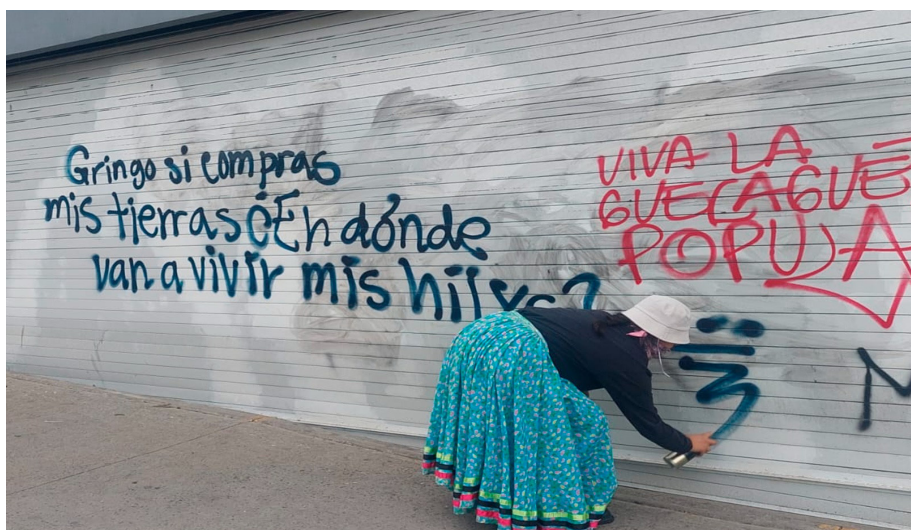 Gringo si compras
mis tierras ¿En dónde
van a vivir mis
VIVA LA
GUELAGUE
POPULA